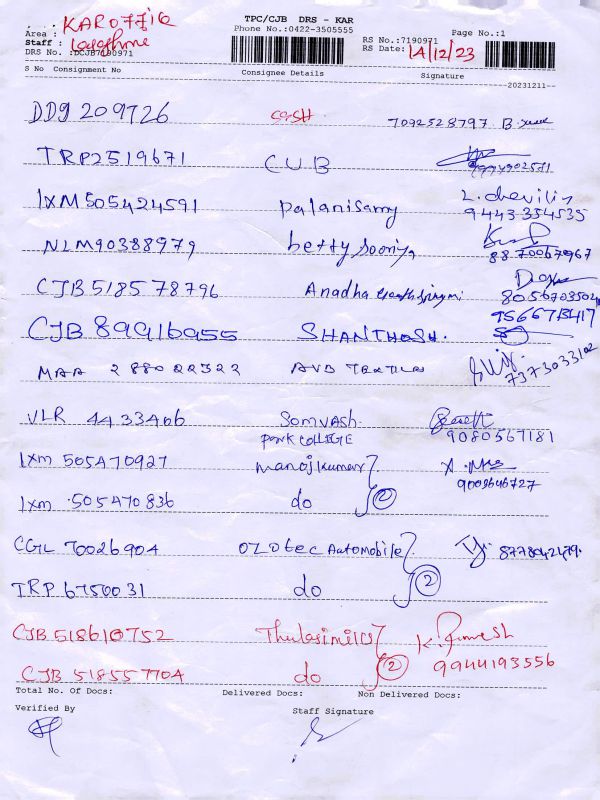 TPC/CJB DRS - KAR
Area : KAROFFIC
Phone No.:0422-3505555
Page No.:1
Staff :
RS No.:7190971
DRS No. :DCJB7190971
RS Date: 14/12/23
S No Consignment No Consignee Details Signature
20231211
DDJ 209726 CASH 7092528797 B.
TRP2519671 CUB
IXM505424591 palanisamy 9443354535
NLM90388979 betty sooriya 8870067967
CJB518578796 Anadha 8056703504
CJB 89916955 SHANTHOSH.
MAA 288022322 AVB TEXTILES 7373033102
VLR 4433406 Somvash.
PARK COLLEGE 9080567181
IXM 505470927 Manojkumar
IXM 505470836 do 2 9003646727
CGL 70026904 OZOtec Automobile 8778042479.
TRP 6750031 do 2
CJB 518610752 Thulasimils K. Ramesh
CJB 518557704 do 2 9944193556
Total No. Of Docs: Delivered Docs: Non Delivered Docs:
Verified By Staff Signature